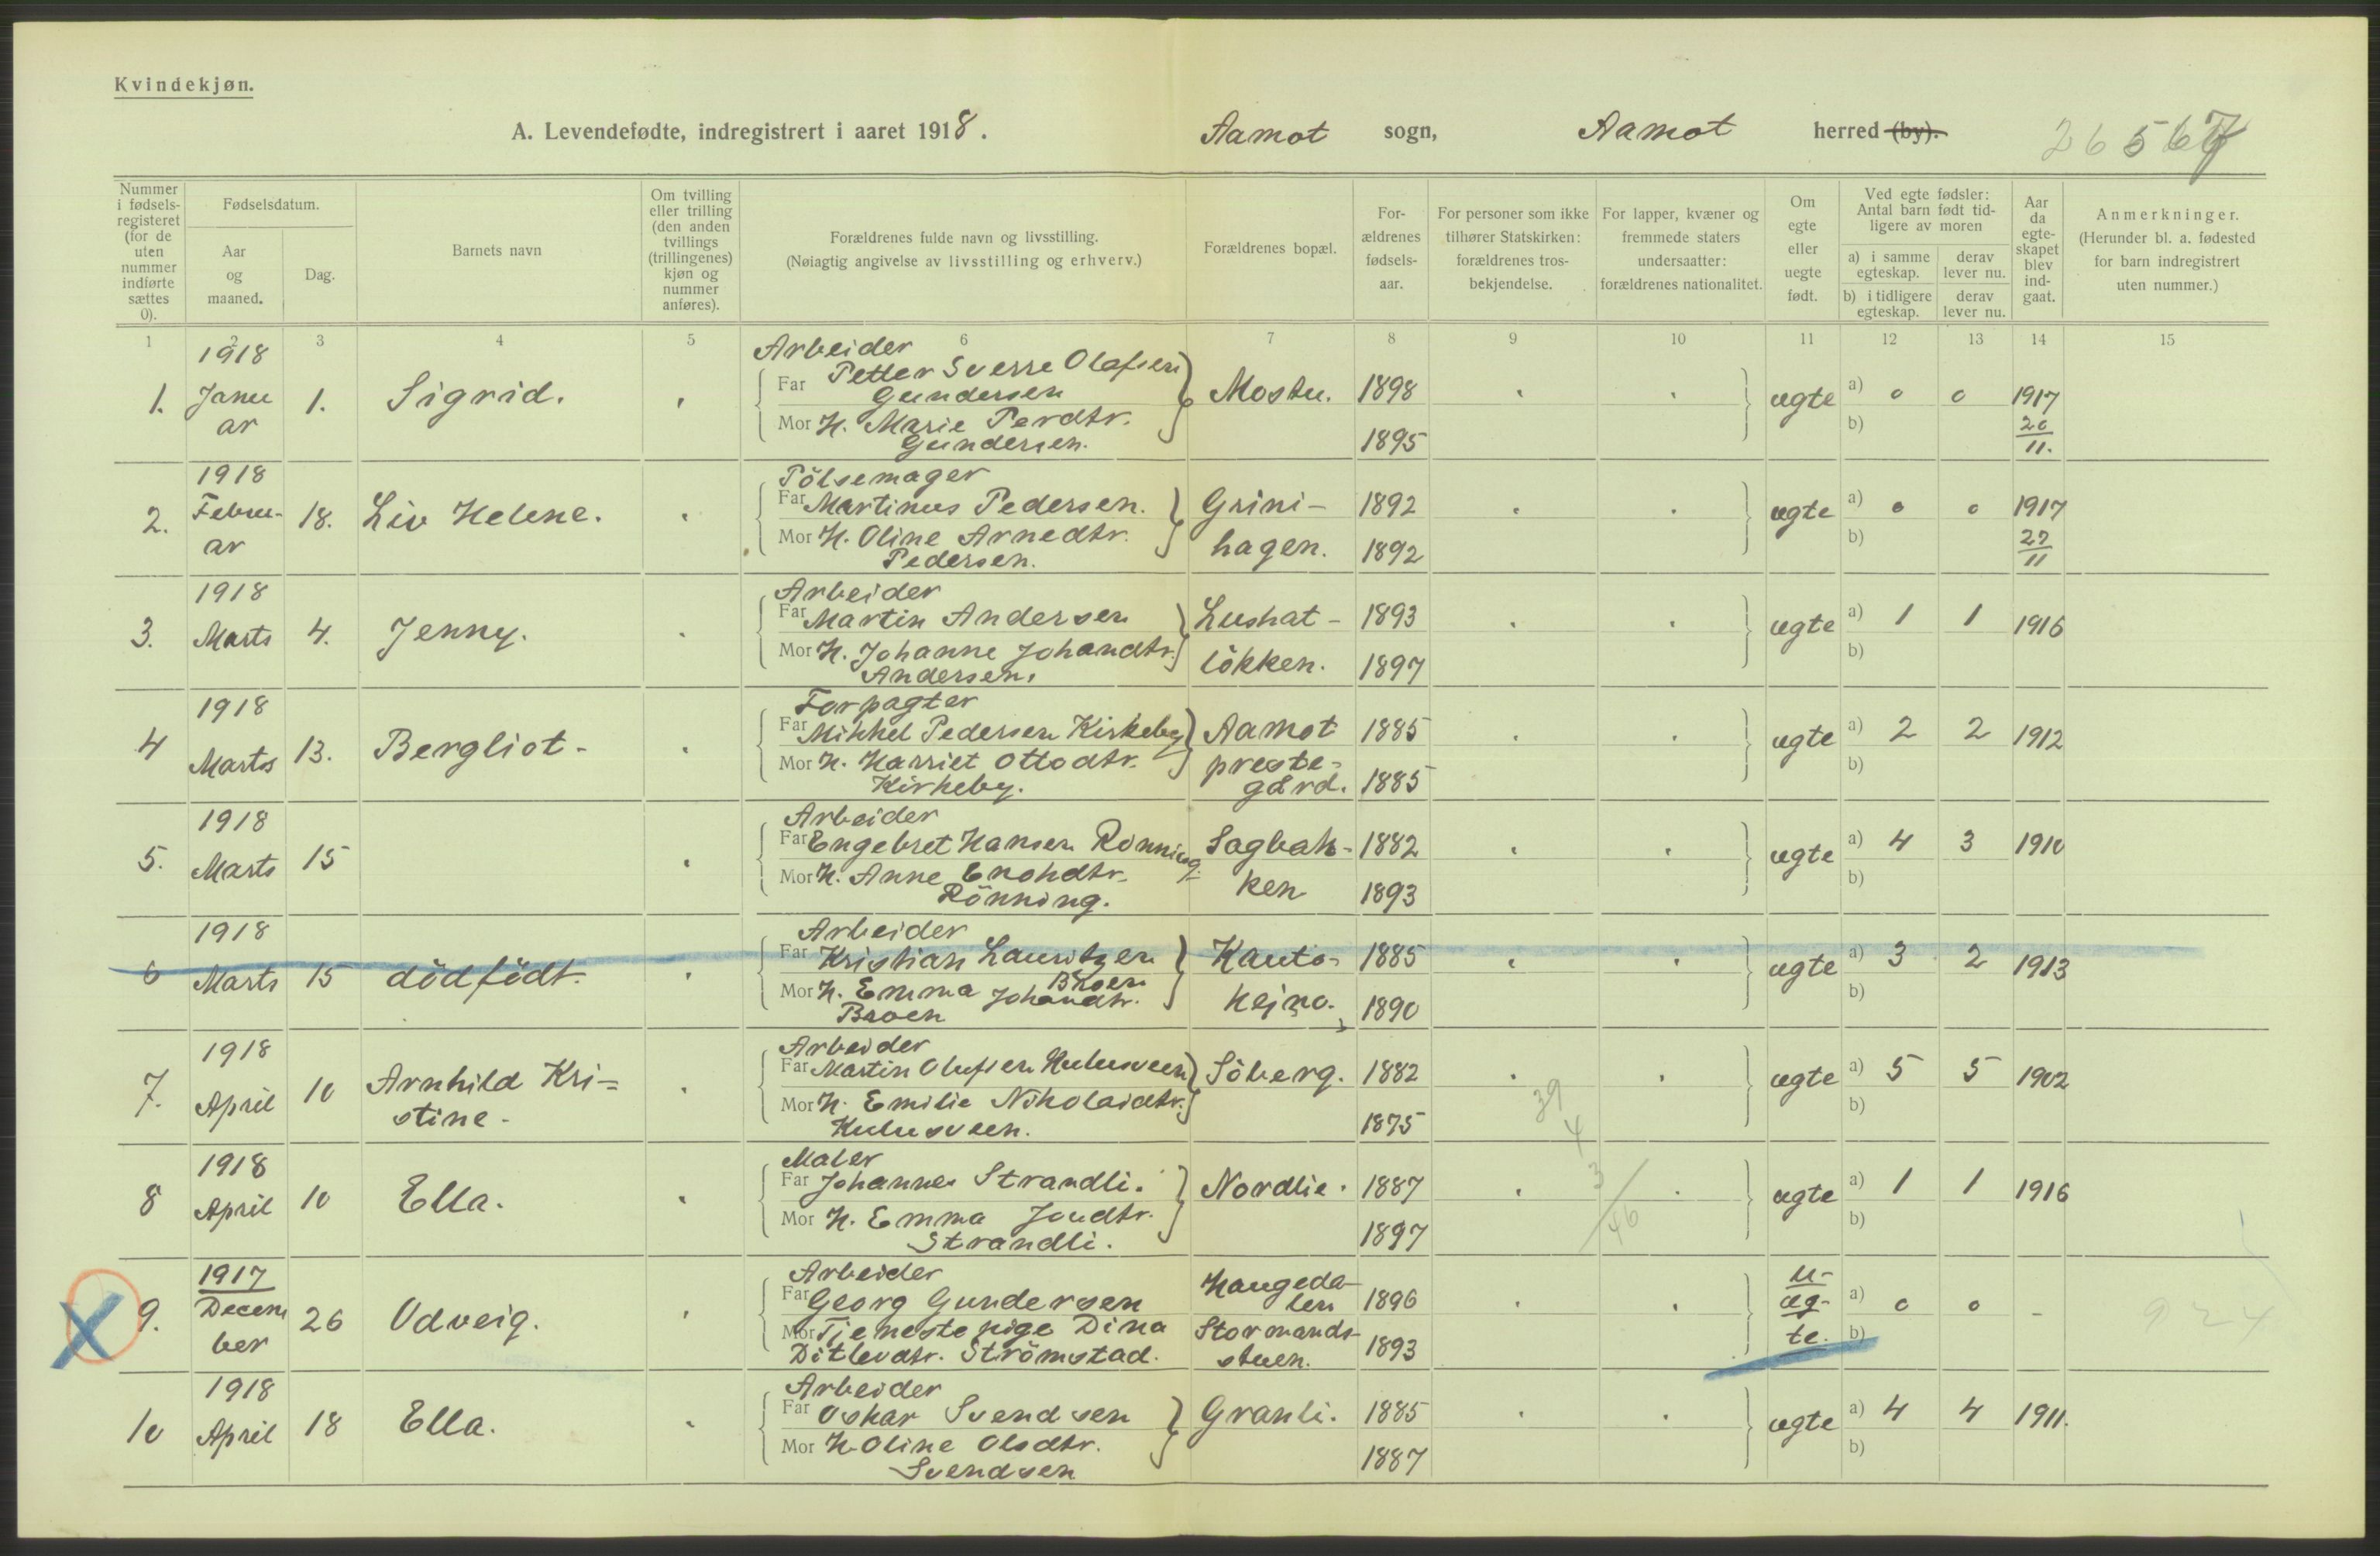 Kvindekjøn.
A. Levendefødte, indregistrert i aaret 1918. Aamot sogn, Aamot herred (by).
Nummer i fødsels-registeret (for de uten nummer indførte sættes 0).
Fødselsdatum.
Aar og maaned.
Dag.
Barnets navn
Om tvilling eller trilling (den anden tvillings (trillingenes) kjøn og nummer anføres).
Forældrenes fulde navn og livsstilling.
(Nøiagtig angivelse av livsstilling og erhverv.)
Forældrenes bopæl.
For-ældrenes fødsels-aar.
For personer som ikke tilhører Statskirken: forældrenes tros-bekjendelse.
For lapper, kvæner og fremmede staters undersaatter: forældrenes nationalitet.
Om egte eller uegte født.
Ved egte fødsler: Antal barn født tid-ligere av moren
a) i samme egteskap.
derav lever nu.
b) i tidligere egteskap.
derav lever nu.
Aar da egte-skapet blev ind-gaat.
Anmerkninger.
(Herunder bl. a. fødested for barn indregistrert uten nummer.)
1 2 3 4 5 6 7 8 9 10 11 12 13 14 15
1918 Arbeider
1. Januar 1. Sigrid. Far Petter Sverre Olafsen Gundersen Mostu. 1898 egte a) 0 0 1917
Mor H. Marie Perdtr. Gundersen. 1895 b) 20/11.
1918 Pölsemager
2. Februar 18. Liv Helene. Far Martinus Pedersen. Grini- 1892 egte a) 0 0 1917
Mor H. Oline Arnedtr. Pedersen. hagen. 1892 b) 27/11
1918 Arbeider
3. Marts 4. Jenny. Far Martin Andersen Lushat- 1893 egte a) 1 1 1916
Mor H. Johanne Johandtr. Andersen. lökken. 1897 b)
1918 Forpagter
4 Marts 13. Bergliot- Far Mikkel Pedersen Kirkeby Aamot 1885 egte a) 2 2 1912
Mor H. Harriet Ottodtr. Kirkeby. preste-gård. 1885 b)
1918 Arbeider
5. Marts 15 Far Engebret Hansen Rönning. Sagbak- 1882 egte a) 4 3 1910
Mor H. Anne Enokdtr. Rönning. ken 1893 b)
1918 Arbeider
6 Marts 15 dödfödt. Far Kristian Lauritzen Broen Kauto- 1885 egte a) 3 2 1913
Mor H. Emma Johandtr. Broen keino. 1890 b)
1918 Arbeider
7. April 10 Arnhild Kri- Far Martin Olufsen Hulusveen Söberg. 1882 egte a) 5 5 1902
stine- Mor H. Emilie Nikolaidtr. Hulusveen. 1875 b)
1918 Maler
8 April 10 Ella. Far Johannes Strandli. Nordlie. 1887 egte a) 1 1 1916
Mor H. Emma Joudtr. Strandli. 1897 b)
1917 Arbeider
9. December 26 Odveig. Far Georg Gundersen Haugeda-len 1896 u-eg-te. a) 0 0 -
Mor Tjenestepige Dina Ditlevdtr. Strömstad. Stormands-stuen. 1893 b)
1918 Arbeider
10 April 18 Ella. Far Oskar Svendsen Granli. 1885 egte a) 4 4 1911.
Mor H. Oline Olsdtr. Svendsen 1887 b)
39
4
3
46
924